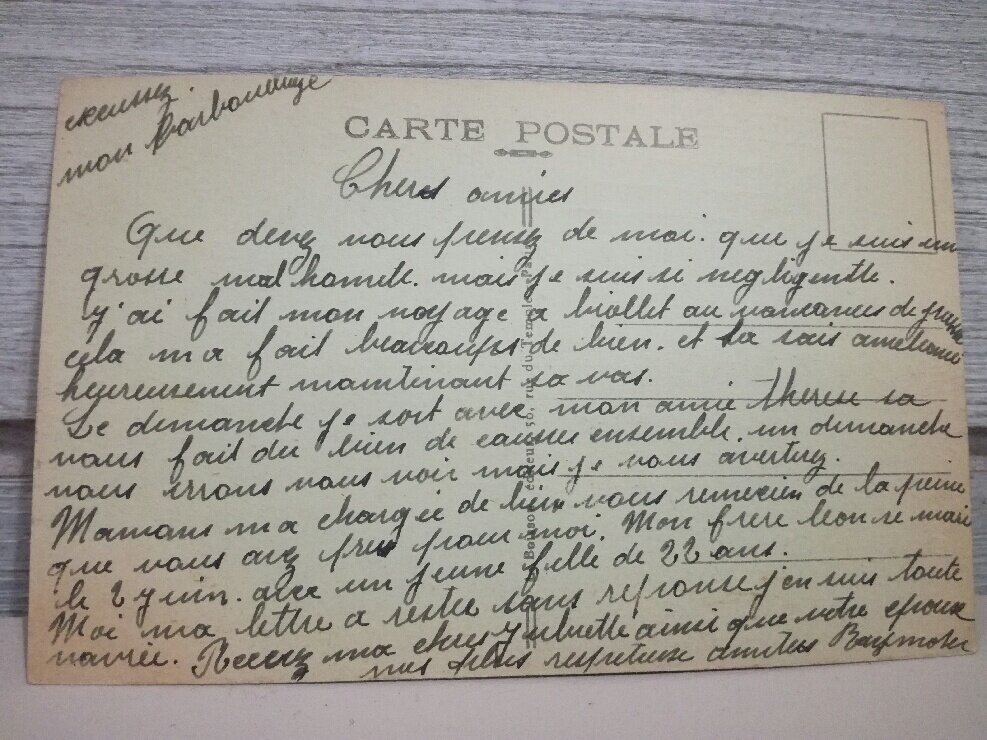 excussez
mon barbouillage
CARTE POSTALE
Cheres amies
Que devez vous pensez de moi. que je suis un
grosse malhonnete. mais je suis si negligente.
j'ai fait mon voyage a biollet au vacances de
cela ma fait beaucoups de bien. et sa vais
heureusement maintinant sa vas.
Le dimanche je sort avec mon amie therese sa
nous fait du bien de causer ensemble. un dimanche
nous irrons vous voir mais je vous avertirez.
Mamans ma chargée de bien vous remercier de la peine
que vous avez pris pour moi. Mon frere leon se marie
le 2 juin. avec un jeune fille de 22 ans.
Moi ma lettre a rester sans reponse j'en suis toute
navrée. Recevez ma chere ainsi que votre epoux
mes plus respetueuse amities
50, rue du Temple